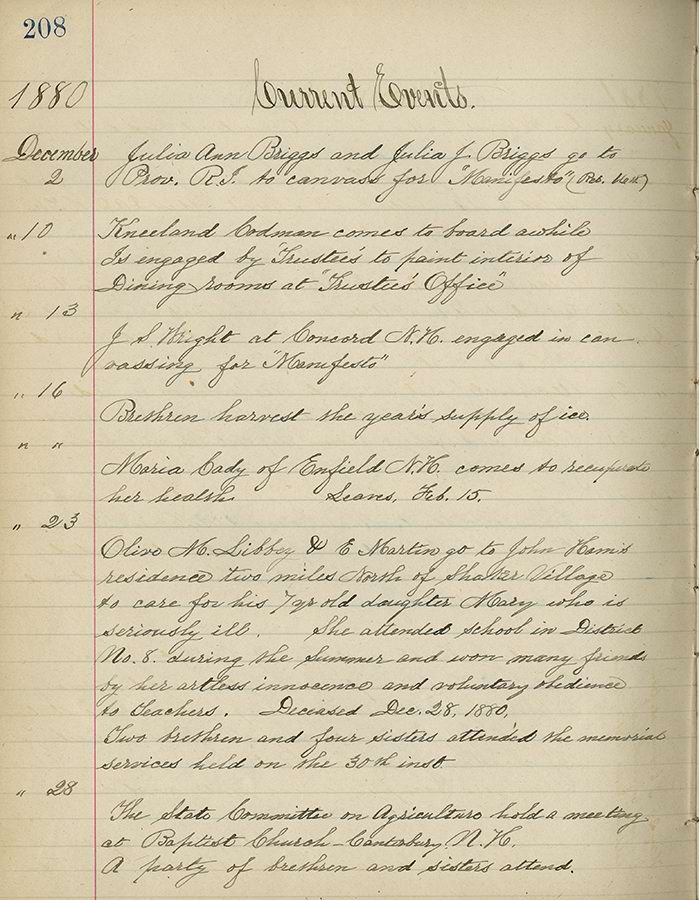 208
1880 Current Events.
December Julia Ann Briggs and Julia J. Briggs go to
2 Prov. R.I. to canvass for "Manifesto"
" 10 Kneeland Codman comes to board awhile
Is engaged by Trustee's to paint interior of
Dining rooms at "Trustee's Office"
" 13
J. S. Wright at Concord N.H. engaged in can
vassing for "Manifesto"
" 16
Brethren harvest the year's supply of ice.
" "
Maria Cady of Enfield N.H. comes to recuperate
her health. Leaves, Feb. 15.
" 23
Olive M. Libbey & E Martin go to John Ham's
residence two miles North of Shaker Village
to care for his 7 yr old daughter Mary who is
seriously ill. She attended school in District
No. 8. during the summer and won many friends
by her artless innocence and voluntary obedience
to teachers. Deceased Dec. 28, 1880.
Two brethren and four sisters attended the memorial
services held on the 30th inst.
" 28
The State Committee on Agriculture hold a meeting
at Baptist Church - Canterbury, N.H.
A party of brethren and sisters attend.